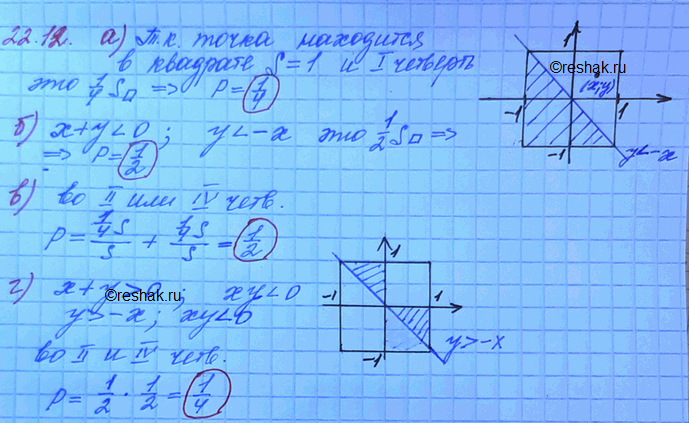 22.12. а) Т.к. точка находится
в квадрате S=1 и I четверть
это 1/4 S□ => P = 1/4
б) x+y<0 ; y<-x это 1/2 S□ =>
=> P = 1/2
в) во II или IV четв.
P = 1/4S/S + 1/4S/S = 1/2
г) x+y>0 ; xy<0
y>-x ; xy<0
во II и IV четв.
P = 1/2 · 1/2 = 1/4
1
©reshak.ru
(x;y)
-1
1
-1
y<-x
©reshak.ru
1
-1
1
-1
y>-x